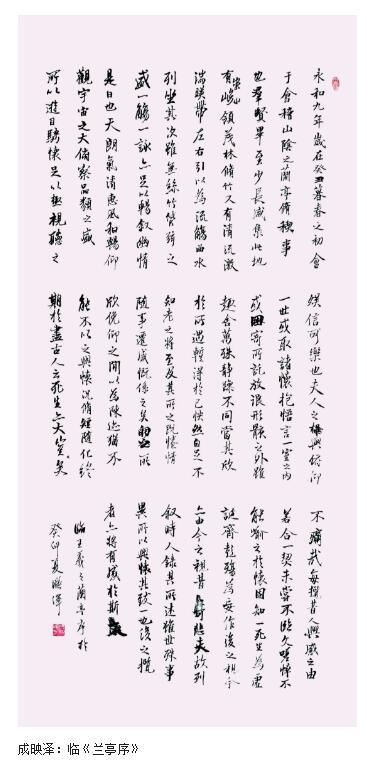 永和九年歲在癸丑暮春之初會
于會稽山陰之蘭亭脩稧事
也羣賢畢至少長咸集此地
有崇山峻領茂林脩竹又有清流激
湍暎帶左右引以為流觴曲水
列坐其次雖無絲竹管弦之
盛一觴一詠亦足以暢敘幽情
是日也天朗氣清惠風和暢仰
觀宇宙之大俯察品類之盛
所以遊目騁懷足以極視聽之
娛信可樂也夫人之相與俯仰
一世或取諸懷抱悟言一室之內
或因寄所託放浪形骸之外雖
趣舍萬殊靜躁不同當其欣
於所遇蹔得於己怏然自足不
知老之將至及其所之既惓情
隨事遷感慨係之矣向之所
欣俛仰之間以為陳迹猶不
能不以之興懷況脩短隨化終
期於盡古人云死生亦大豈矣
不痛哉每攬昔人興感之由
若合一契未嘗不臨文嗟悼不
能喻之於懷固知一死生為虛
誕齊彭殤為妄作後之視今
亦由今之視昔悲夫故列
敘時人錄其所述雖世殊事
異所以興懷其致一也後之攬
者亦將有感於斯文
臨王羲之蘭亭序於
癸卯夏
成映泽：临《兰亭序》